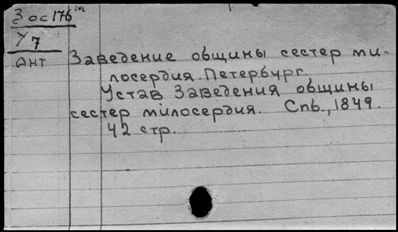 З ос 176
У 7
Ант
Заведение общины сестер ми-
лосердия. Петербург.
Устав Заведения общины
сестер милосердия. Спб., 1849.
42 стр.